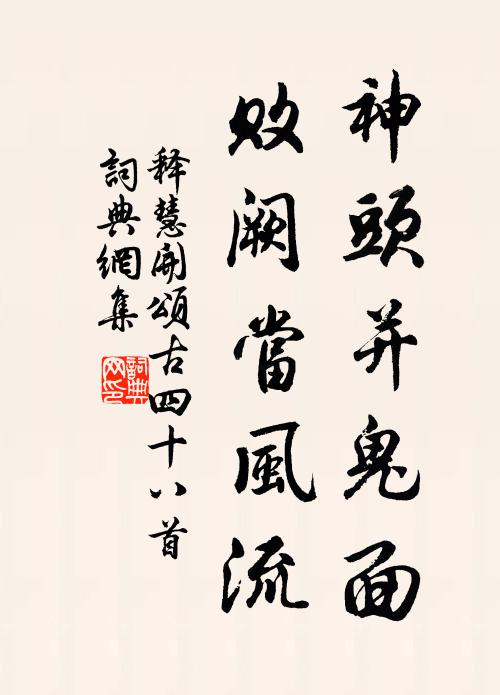 神頭并鬼面
败阙當風流
释慧開頌古四十八首
詞典網集
詞典网印